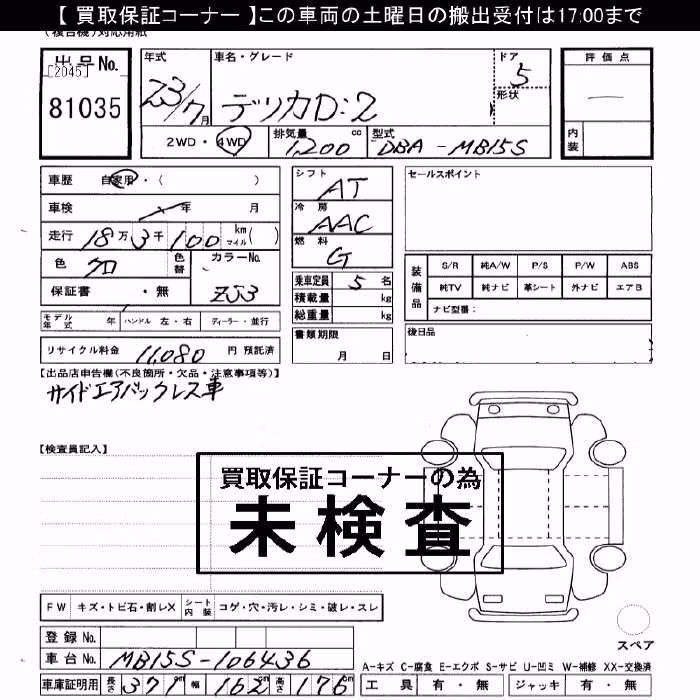 【 買取保証コーナー 】この車両の土曜日の搬出受付は17:00まで
(複合機)対応用紙
出品No.
[2045]
81035
年式
23/7月
車名・グレード
デリカD:2
ドア
5
形状
評価点
内装
2WD・4WD
排気量 1,200 cc
型式 DBA-MB15S
車歴 自家用・( )
車検 年 月
走行 18万3千100 km マイル( )
色 クロ
色替
カラーNo. ZJ3
保証書 ・ 無
モデル年式 年 ハンドル 左・右 ディーラー・並行
リサイクル料金 11,080 円 預託済
シフト AT
冷房 AAC
燃料 G
乗車定員 5 名
積載量 kg
総重量 kg
書類期限
月 日
セールスポイント
装備品
S/R 純A/W P/S P/W ABS
純TV 純ナビ 革シート 外ナビ エアB
ナビ型番:
後日品
【出品店申告欄(不良箇所・欠品・注意事項等)】
サイドエアバックレス車
【検査員記入】
買取保証コーナーの為
未検査
FW キズ・トビ石・割レX シート内装 コゲ・穴・汚レ・シミ・破レ・スレ
スペア
登録No.
車台No. MB15S-106436
車庫証明用 長さ 371cm 幅 162cm 高さ 176cm
A-キズ C-腐食 E-エクボ S-サビ U-凹ミ W-補修 XX-交換済
工具 有・無 ジャッキ 有・無